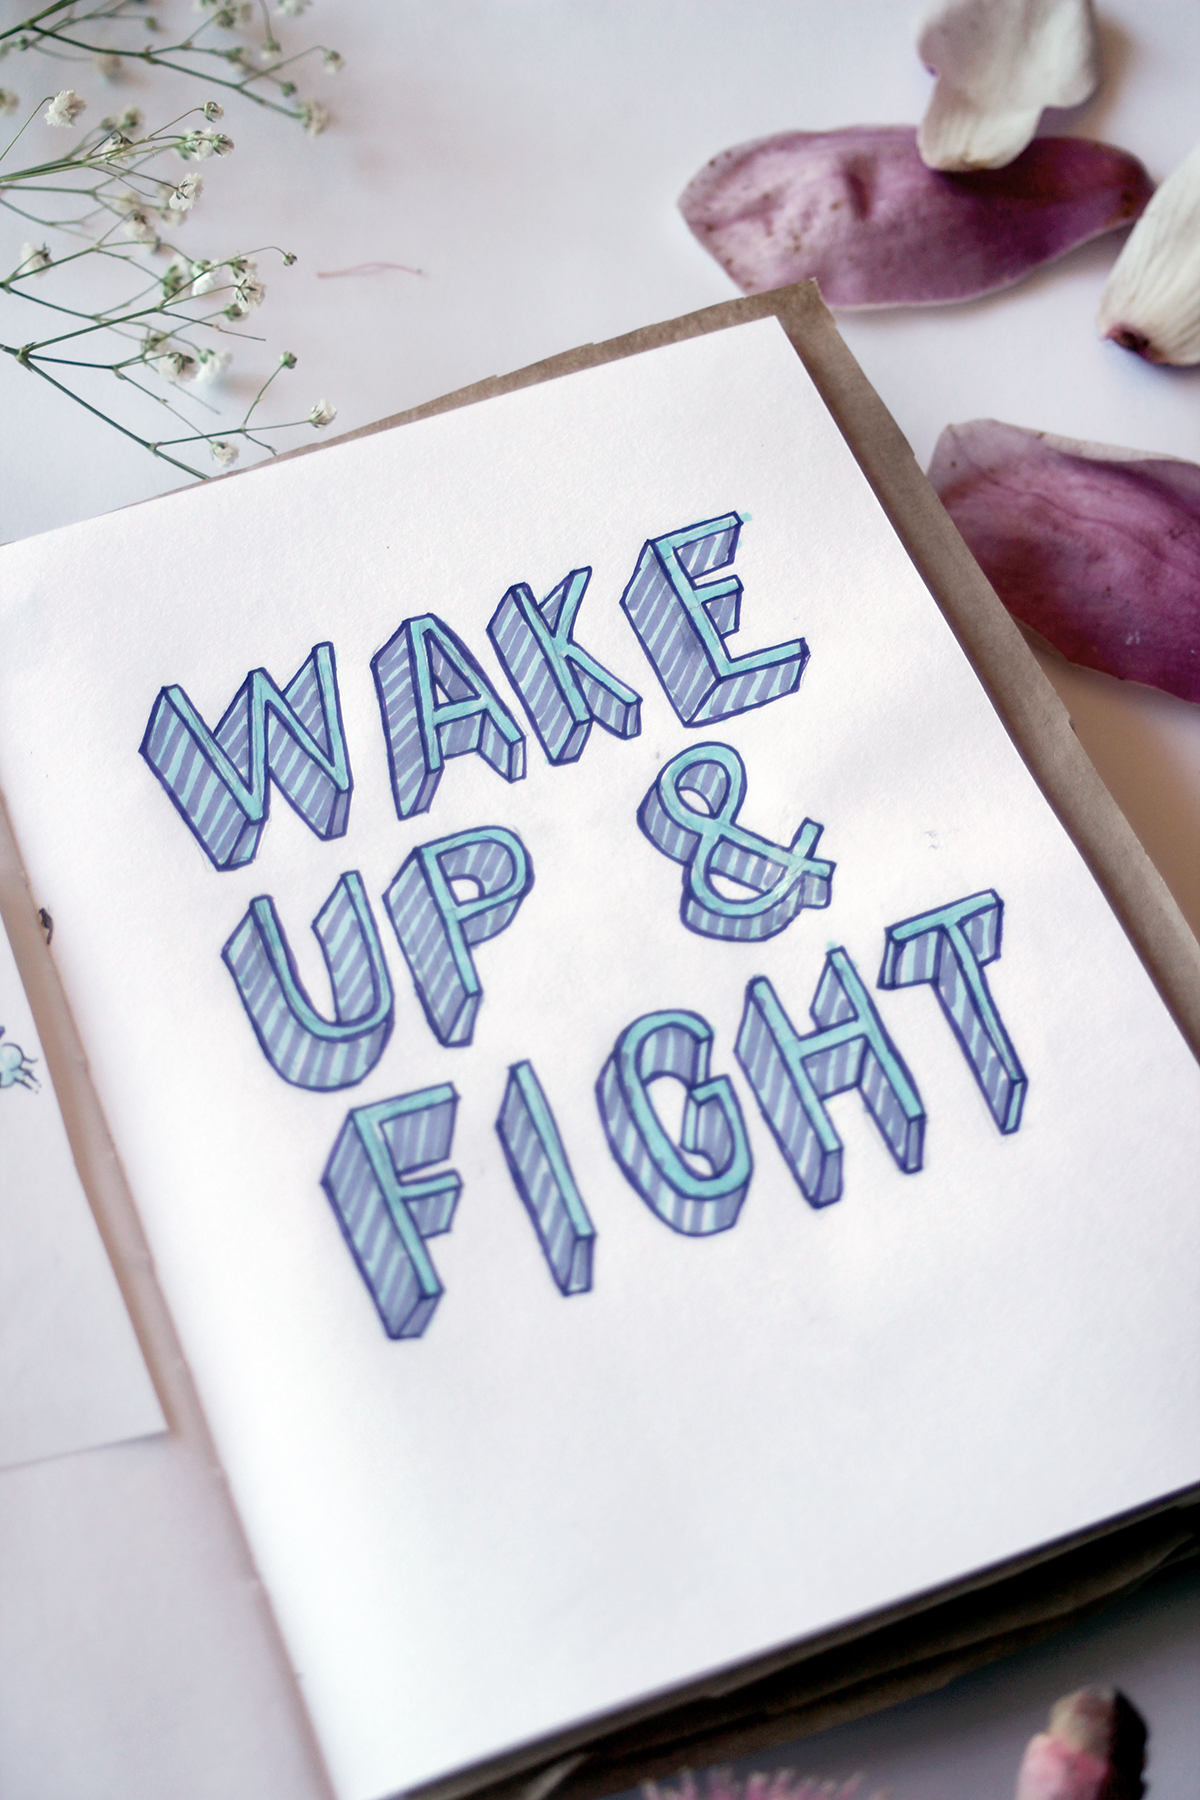 WAKE
UP &
FIGHT